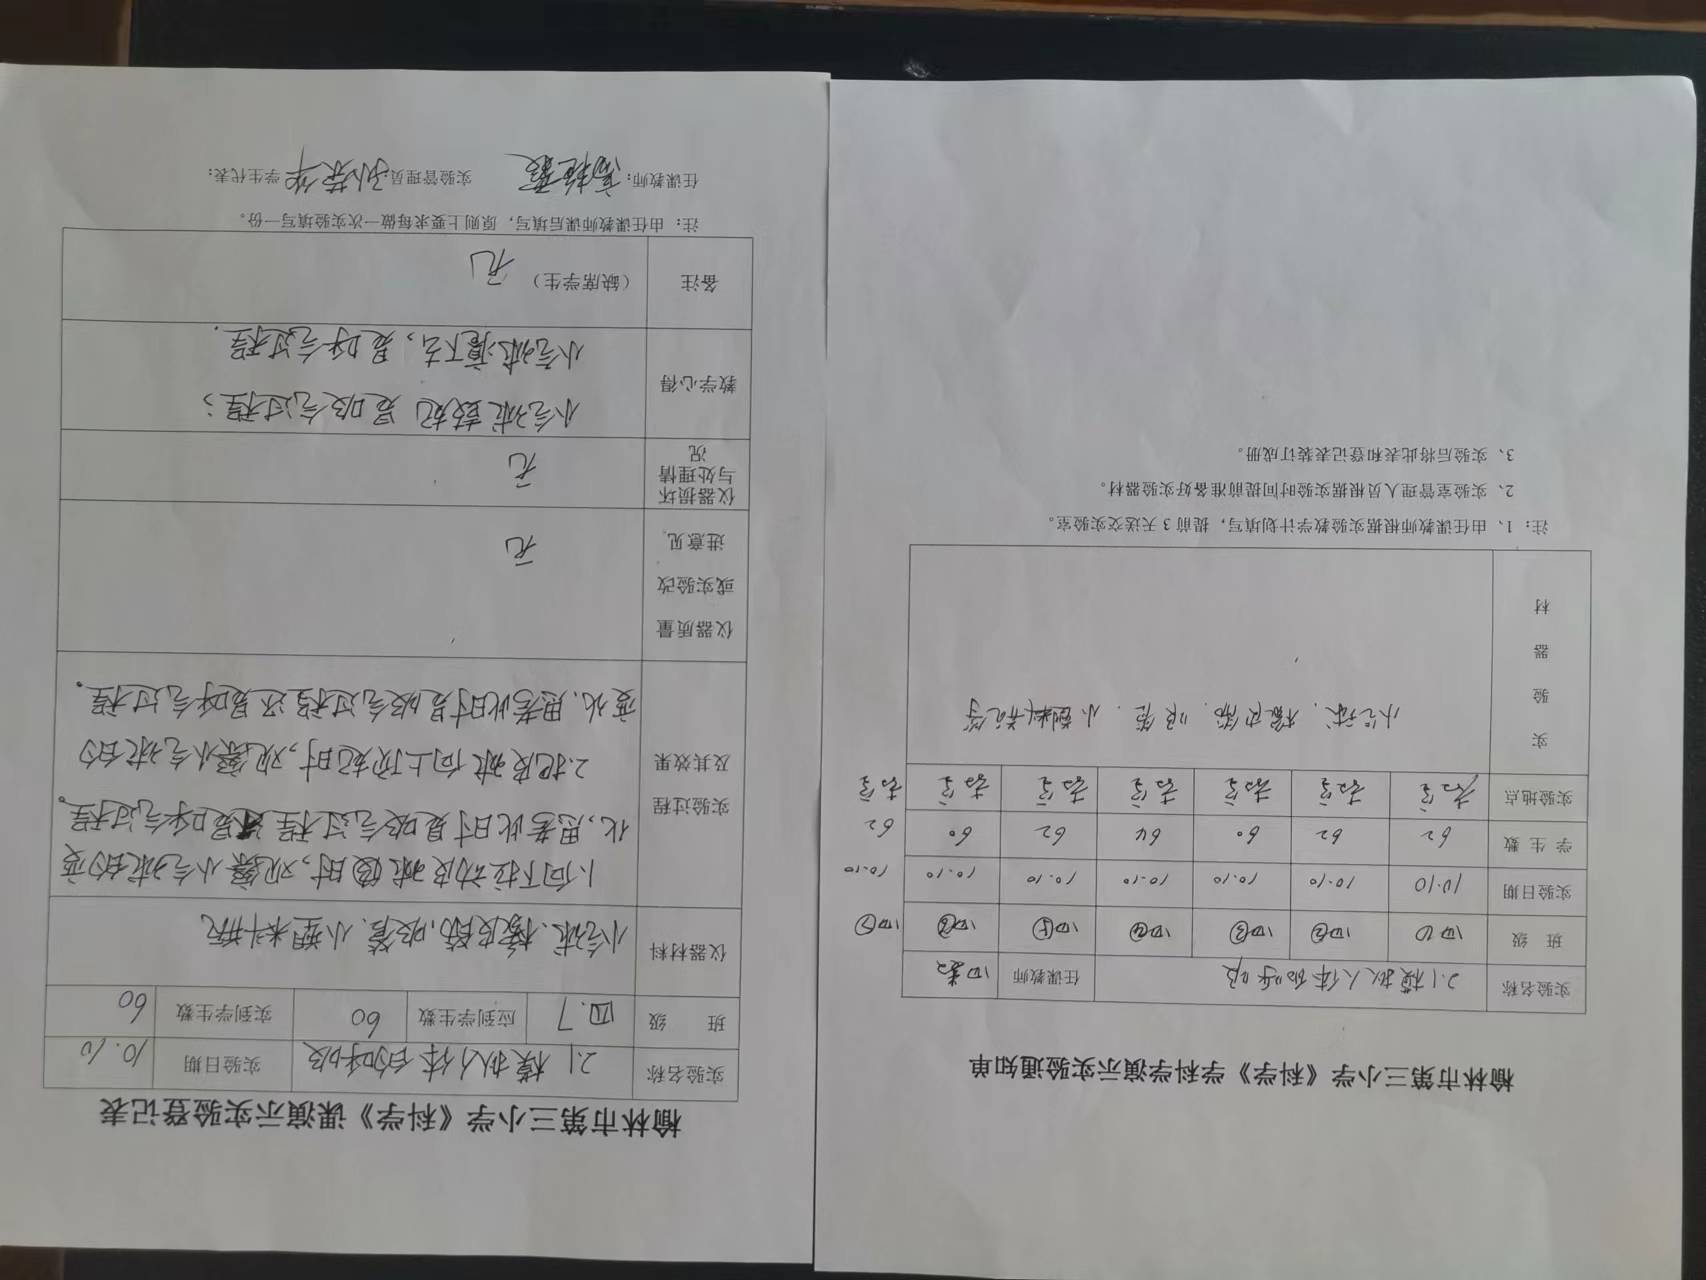 榆林市第三小学《科学》学科学演示实验通知单
实验名称 2.1模拟人体的呼吸 任课教师
班 级 四① 四② 四③ 四④ 四⑤ 四⑥ 四⑦
实验日期 10.10 10.10 10.10 10.10 10.10 10.10 10.10
学生数 62 62 60 64 62 60 62
实验地点 教室 教室 教室 教室 教室 教室 教室
实验器材 小气球、橡皮筋、吸管、小塑料瓶等
注：1、由任课教师根据实验教学计划填写，提前3天送交实验室。
2、实验室管理人员根据实验时间提前准备好实验器材。
3、实验后将此表和登记表装订成册。
榆林市第三小学《科学》课演示实验登记表
实验名称 2.1 模拟人体的呼吸 实验日期 10.10
班 级 四.7 应到学生数 60 实到学生数 60
仪器材料 小气球、橡皮筋、吸管、小塑料瓶
实验过程及其效果
1.向下拉动皮球膜时，观察小气球的变
化，思考此时是吸气过程还是呼气过程。
2.把皮球向上顶起时，观察小气球的
变化，思考此时是吸气过程还是呼气过程。
仪器质量或实验改进意见 无
仪器损坏与处理情况 无
教学心得 小气球鼓起是吸气过程；
小气球瘪下去，是呼气过程.
备注 （缺席学生） 无
注：由任课教师课后填写，原则上要求每做一次实验填写一份。
任课教师： 实验管理员 学生代表：